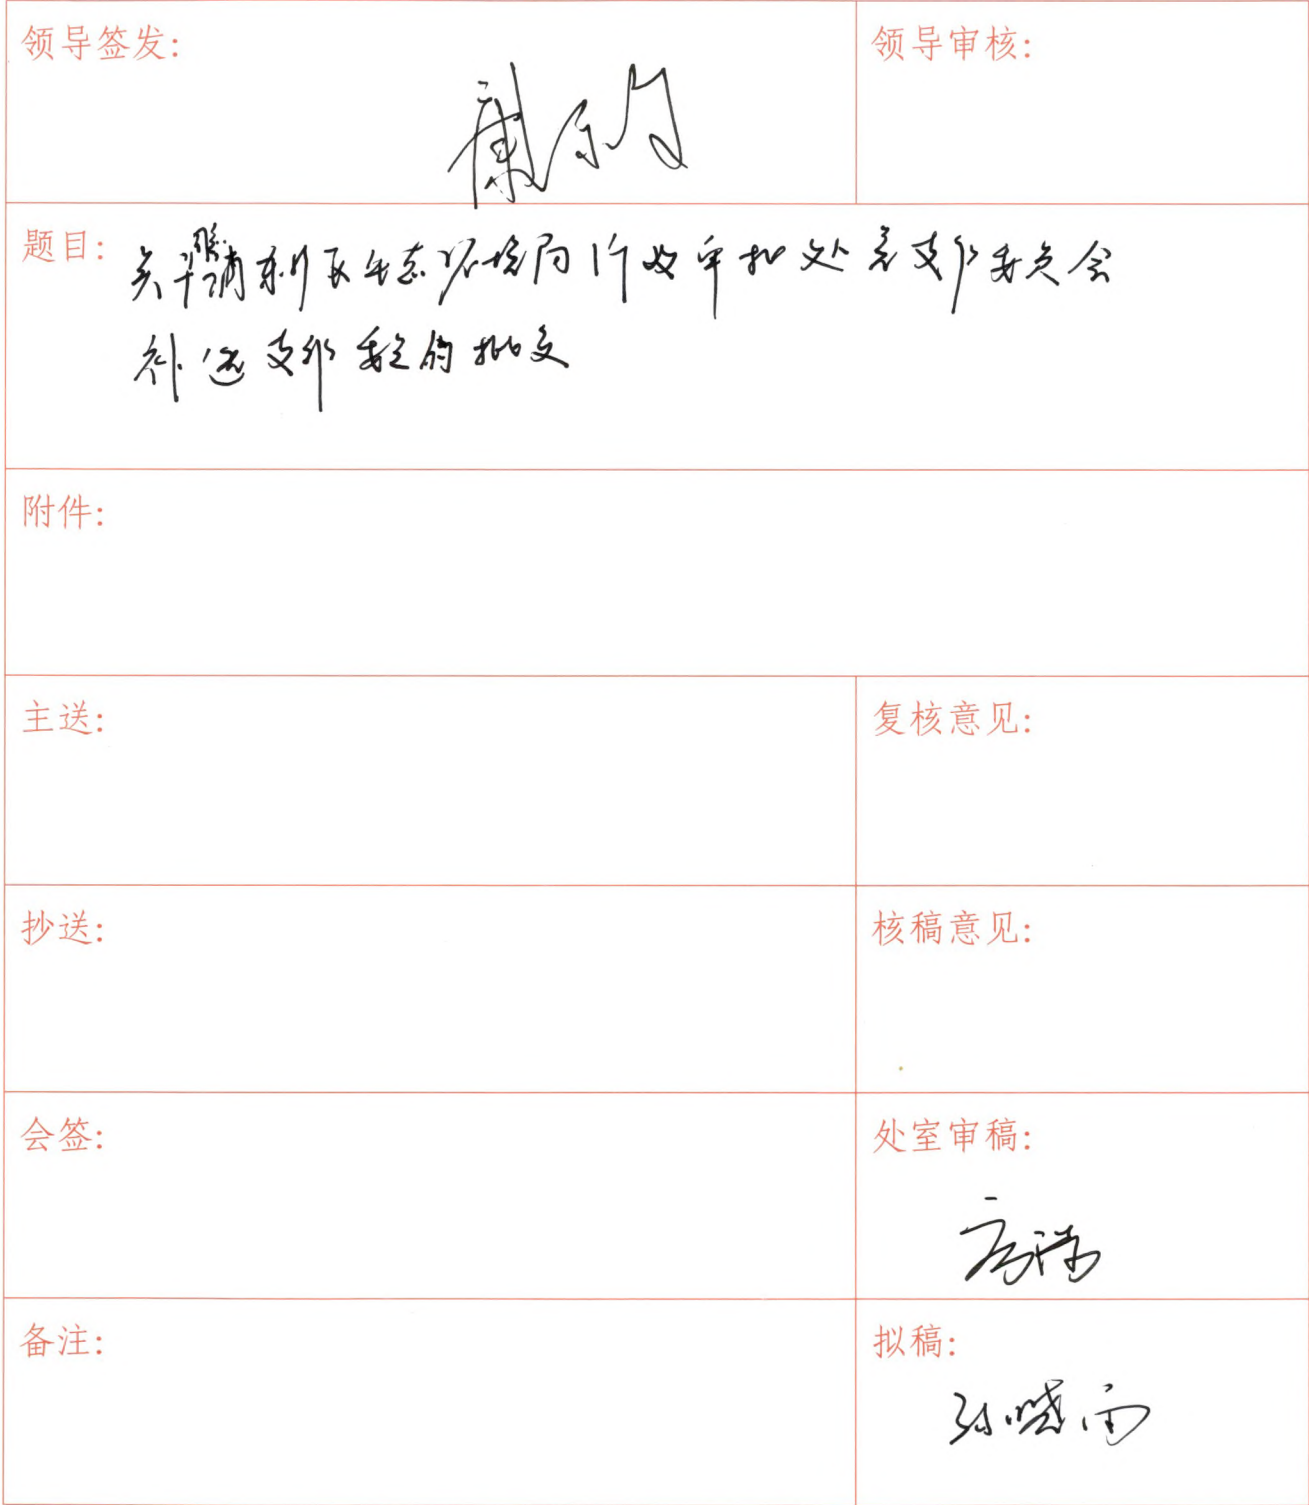 领导签发:
领导审核:
题目: 关于浦东新区生态环境局行政审批处室支部委员会
补选支部委员的批复
附件:
主送:
复核意见:
抄送:
核稿意见:
会签:
处室审稿:
备注:
拟稿:
孙晓雨